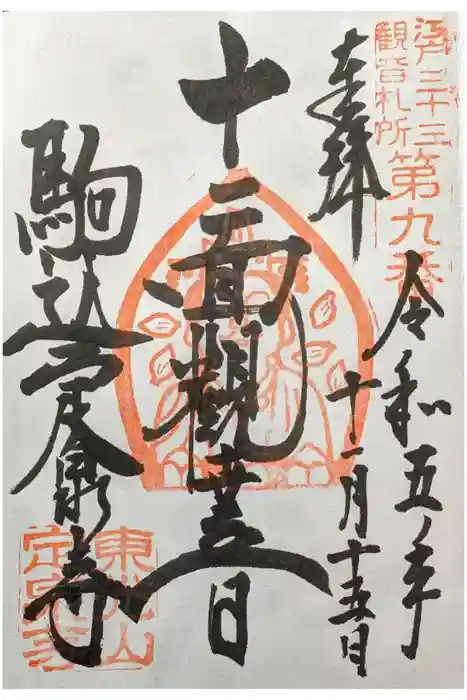 江戸三十三
観音札所第九番
奉拝
令和五年
十一月十五日
十一面観世音
駒込定泉寺
東光山
定泉寺